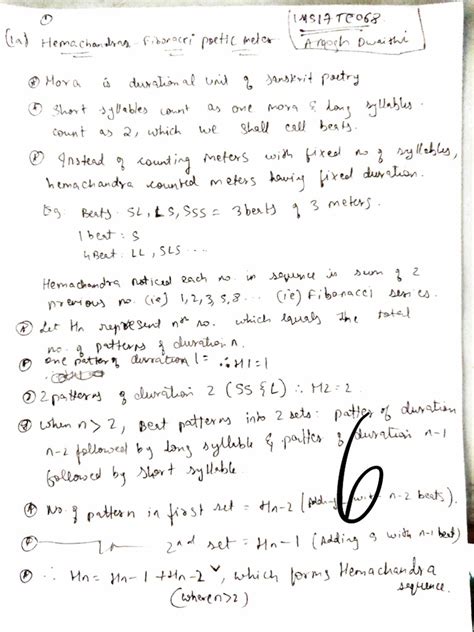 ①
1MS17TE068
(1a) Hemachandras - Fibonacci poetic meter
Mora is durational unit of sanskrit poetry
Short syllables count as one mora & long syllables
count as 2, which we shall call beats.
Instead of counting meters with fixed no of syllables,
hemachandra counted meters having fixed duration.
Eg. Beats: SL, LS, SSS = 3 beats of 3 meters.
1 beat : S
4 Beat : LL, SLS ...
Hemachandra noticed each no. in sequence is sum of 2
previous no. (ie) 1,2,3,5,8... (ie) Fibonacci series.
Let Hn represent nth no. which equals the total
no. of patterns of duration n.
one pattern of duration 1 = ∴ H1=1
2 patterns of duration 2 (SS & L) ∴ H2=2.
when n>2, Beat patterns into 2 sets: pattern of duration
n-2 followed by long syllable & pattern of duration n-1
followed by short syllable.
No. of pattern in first set = Hn-2 (Adding with n-2 beats).
2nd set = Hn-1 (Adding s with n-1 beat)
∴ Hn = Hn-1 + Hn-2, which forms Hemachandra
sequence.
(where n>2)
6